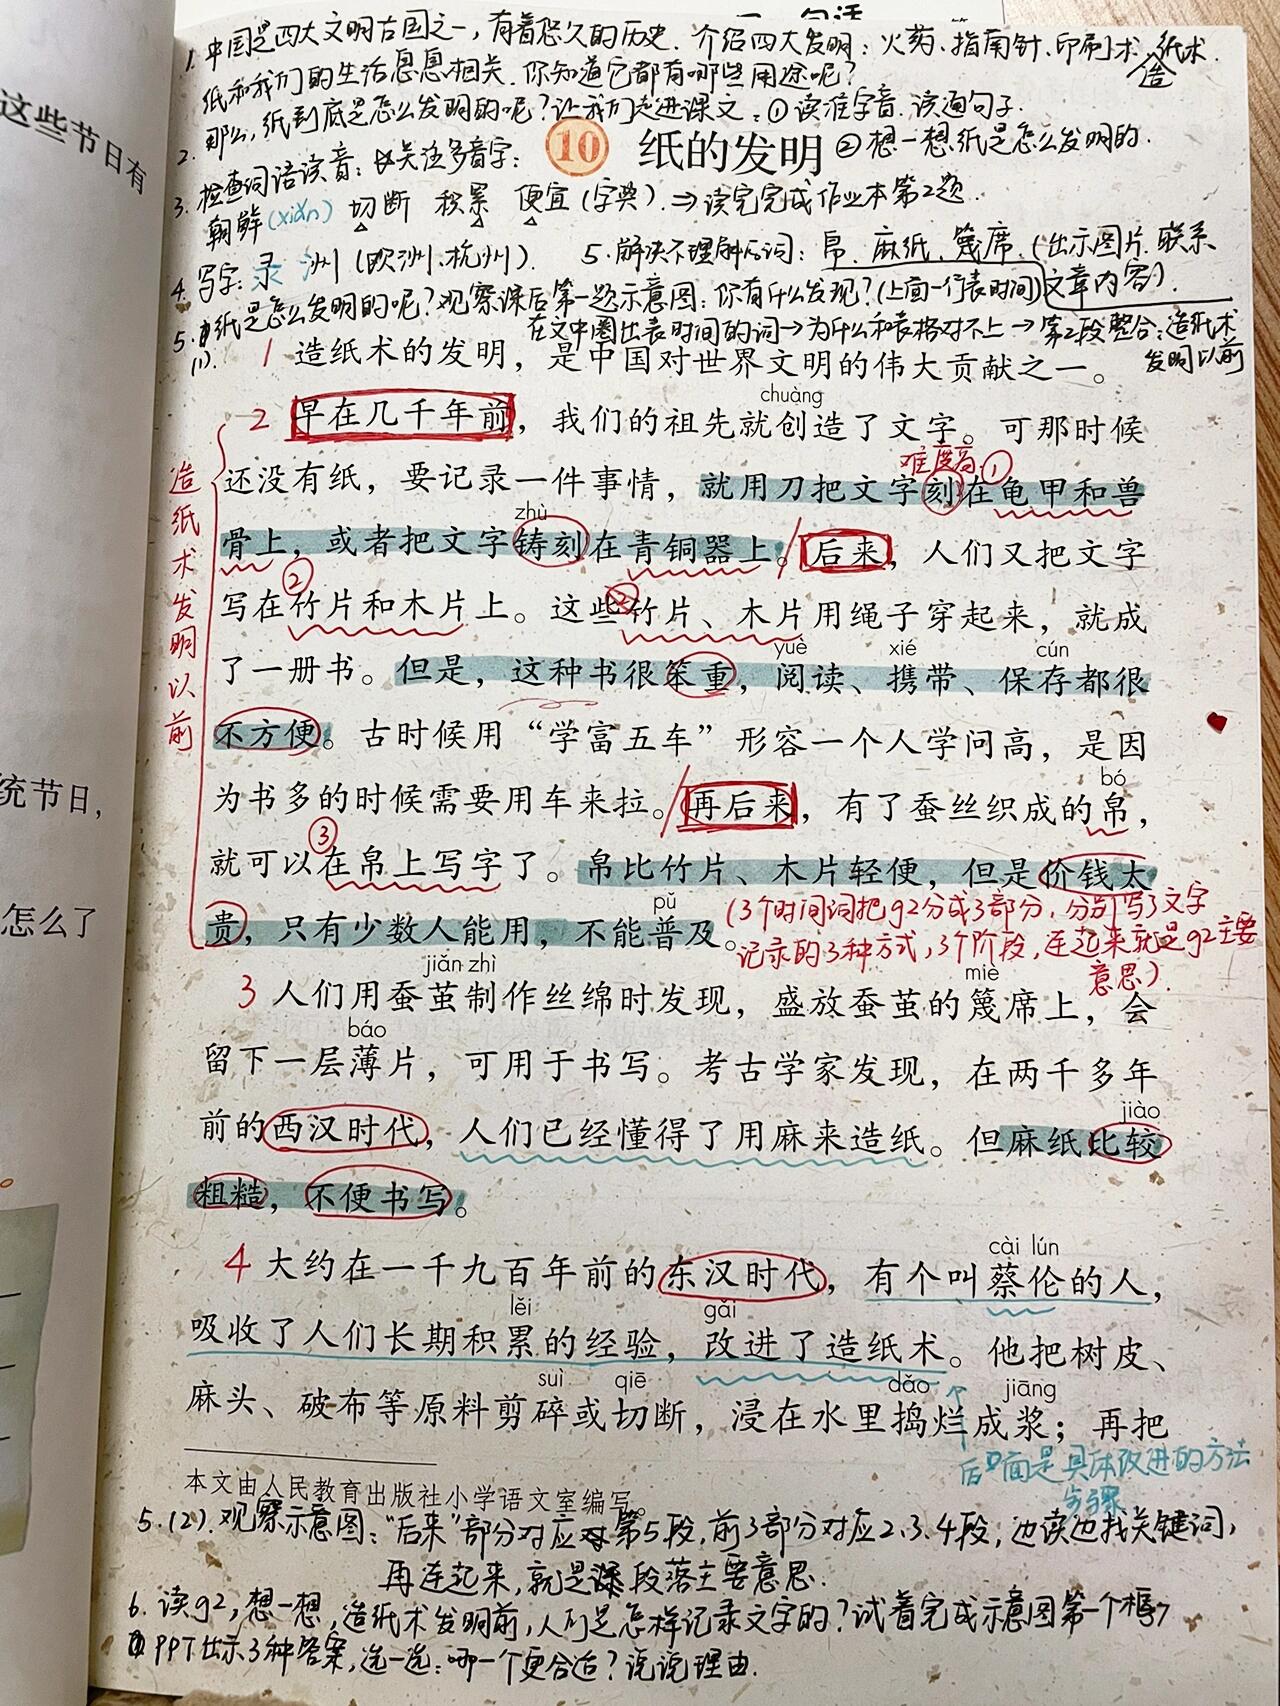 这些节日有
统节日，
怎么了
1. 中国是四大文明古国之一，有着悠久的历史. 介绍四大发明：火药、指南针、印刷术、造纸术.
纸和我们的生活息息相关. 你知道它都有哪些用途呢？
2. 那么，纸到底是怎么发明的呢？让我们走进课文：①读准字音. 读通句子.
10 纸的发明 ②想一想纸是怎么发明的.
3. 检查词语读音：关注多音字：
朝鲜(xiǎn) 切断 积累 便宜(字典). ⇒读完完成作业本第2题.
4. 写字：录 州(欧洲、杭州). 5. 解决不理解的词：帛、麻纸、篾席.(出示图片. 联系文章内容).
5. 纸是怎么发明的呢？观察课后第一题示意图：你有什么发现？(上面一行表时间)
(1). 在文中圈出表时间的词→为什么和表格对不上→第2段整合：造纸术发明以前
1 造纸术的发明，是中国对世界文明的伟大贡献之一。
chuàng
2 早在几千年前，我们的祖先就创造了文字。可那时候
难度高 ①
还没有纸，要记录一件事情，就用刀把文字刻在龟甲和兽
zhù
骨上，或者把文字铸刻在青铜器上。后来，人们又把文字
② ②
写在竹片和木片上。这些竹片、木片用绳子穿起来，就成
yuè xié cún
了一册书。但是，这种书很笨重，阅读、携带、保存都很
不方便。古时候用“学富五车”形容一个人学问高，是因
bó
为书多的时候需要用车来拉。再后来，有了蚕丝织成的帛，
③
就可以在帛上写字了。帛比竹片、木片轻便，但是价钱太
pǔ
贵，只有少数人能用，不能普及。
造纸术发明以前
(3个时间词把g2分成3部分，分别写了文字
记录的3种方式，3个阶段，连起来就是g2主要
意思).
jiǎn zhì miè
3 人们用蚕茧制作丝绵时发现，盛放蚕茧的篾席上，会
báo
留下一层薄片，可用于书写。考古学家发现，在两千多年
jiào
前的西汉时代，人们已经懂得了用麻来造纸。但麻纸比较
粗糙，不便书写。
cài lún
4 大约在一千九百年前的东汉时代，有个叫蔡伦的人，
lěi gǎi
吸收了人们长期积累的经验，改进了造纸术。他把树皮、
suì qiē dǎo jiāng
麻头、破布等原料剪碎或切断，浸在水里捣烂成浆；再把
后面是具体改进的方法
步骤
本文由人民教育出版社小学语文室编写。
5.(2). 观察示意图：“后来”部分对应第5段，前3部分对应2、3、4段，边读边找关键词，
再连起来，就是段落主要意思.
6. 读g2，想一想，造纸术发明前，人们是怎样记录文字的？试着完成示意图第一个框，
PPT出示3种答案，选一选：哪一个更合适？说说理由.